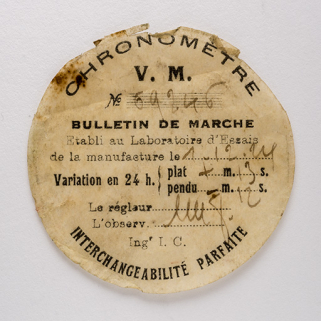 CHRONOMÈTRE
V. M.
№
BULLETIN DE MARCHE
Etabli au Laboratoire d'Essais
de la manufacture le 1.12.
Variation en 24 h. { plat + m. s.
pendu m. 12 s.
Le régleur
L'observ.
Ingr I. C.
INTERCHANGEABILITÉ PARFAITE